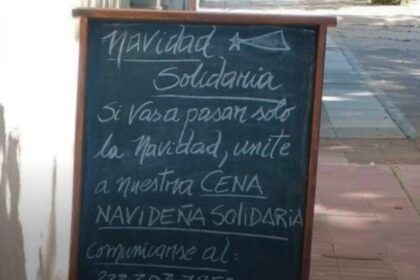 Navidad
Solidaria
Si vas a pasar solo
la Navidad, unite
a nuestra CENA
NAVIDEÑA SOLIDARIA
comunicarse al: